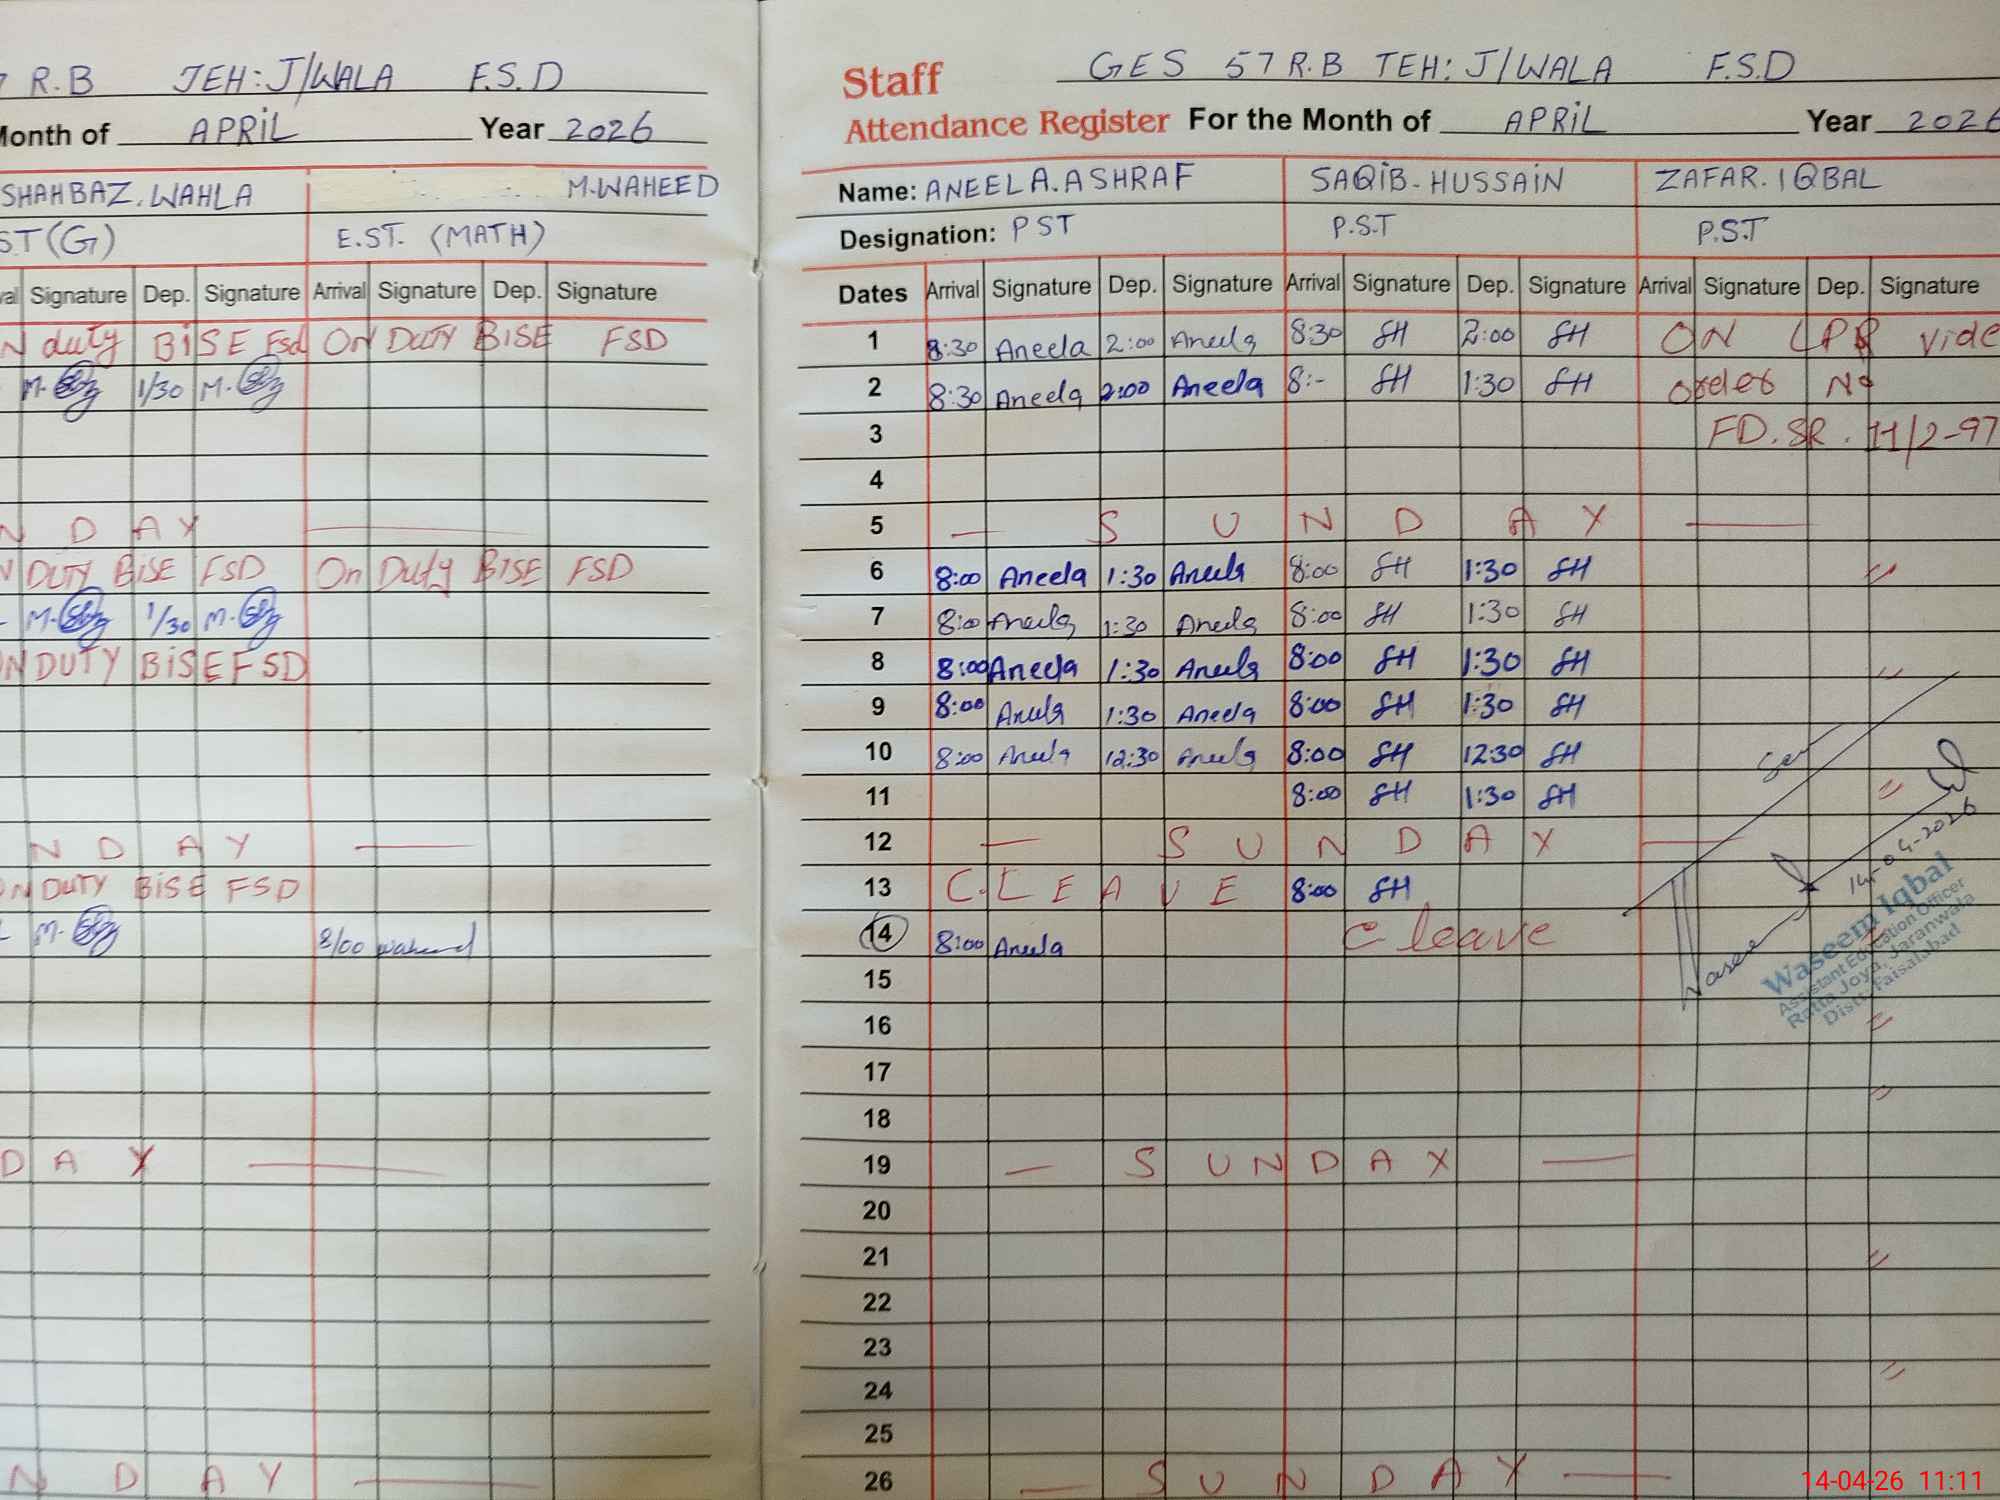 R.B TEH: J/WALA F.S.D
Month of APRIL Year 2026
SHAHBAZ. WAHLA M.WAHEED
ST (G) E.ST. (MATH)
Signature Dep. Signature Arrival Signature Dep. Signature
N duty BISE Fsd ON DUTY BISE FSD
M. 1/30 M.
N D A Y
DUTY BISE FSD On Duty BISE FSD
M. 1/30 M.
ON DUTY BISE FSD
N D A Y
ON DUTY BISE FSD
M. 8/00 waheed
D A Y
N D A Y
Staff GES 57 R.B TEH: J/WALA F.S.D
Attendance Register For the Month of APRIL Year 2026
Name: ANEELA.ASHRAF SAQIB-HUSSAIN ZAFAR.IQBAL
Designation: PST P.S.T P.S.T
Dates Arrival Signature Dep. Signature Arrival Signature Dep. Signature Arrival Signature Dep. Signature
1 8:30 Aneela 2:00 Aneela 8:30 SH 2:00 SH ON LPR vide
2 8:30 Aneela 2:00 Aneela 8:- SH 1:30 SH order No
3 FD.SR. 11/2-97
4
5 — S U N D A Y —
6 8:00 Aneela 1:30 Aneela 8:00 SH 1:30 SH 〃
7 8:00 Aneela 1:30 Aneela 8:00 SH 1:30 SH
8 8:00 Aneela 1:30 Aneela 8:00 SH 1:30 SH 〃
9 8:00 Aneela 1:30 Aneela 8:00 SH 1:30 SH
10 8:00 Aneela 12:30 Aneela 8:00 SH 12:30 SH
11 8:00 SH 1:30 SH 〃
12 — S U N D A Y —
13 C. L E A V E 8:00 SH
14 8:00 Aneela C leave
14-04-2026
Waseem Iqbal
Assistant Education Officer
Ratta Joya, Jaranwala
Distt. Faisalabad
15
16 〃
17
18 〃
19 — S U N D A Y —
20
21 〃
22
23
24 〃
25
26 — S U N D A Y —
14-04-26 11:11